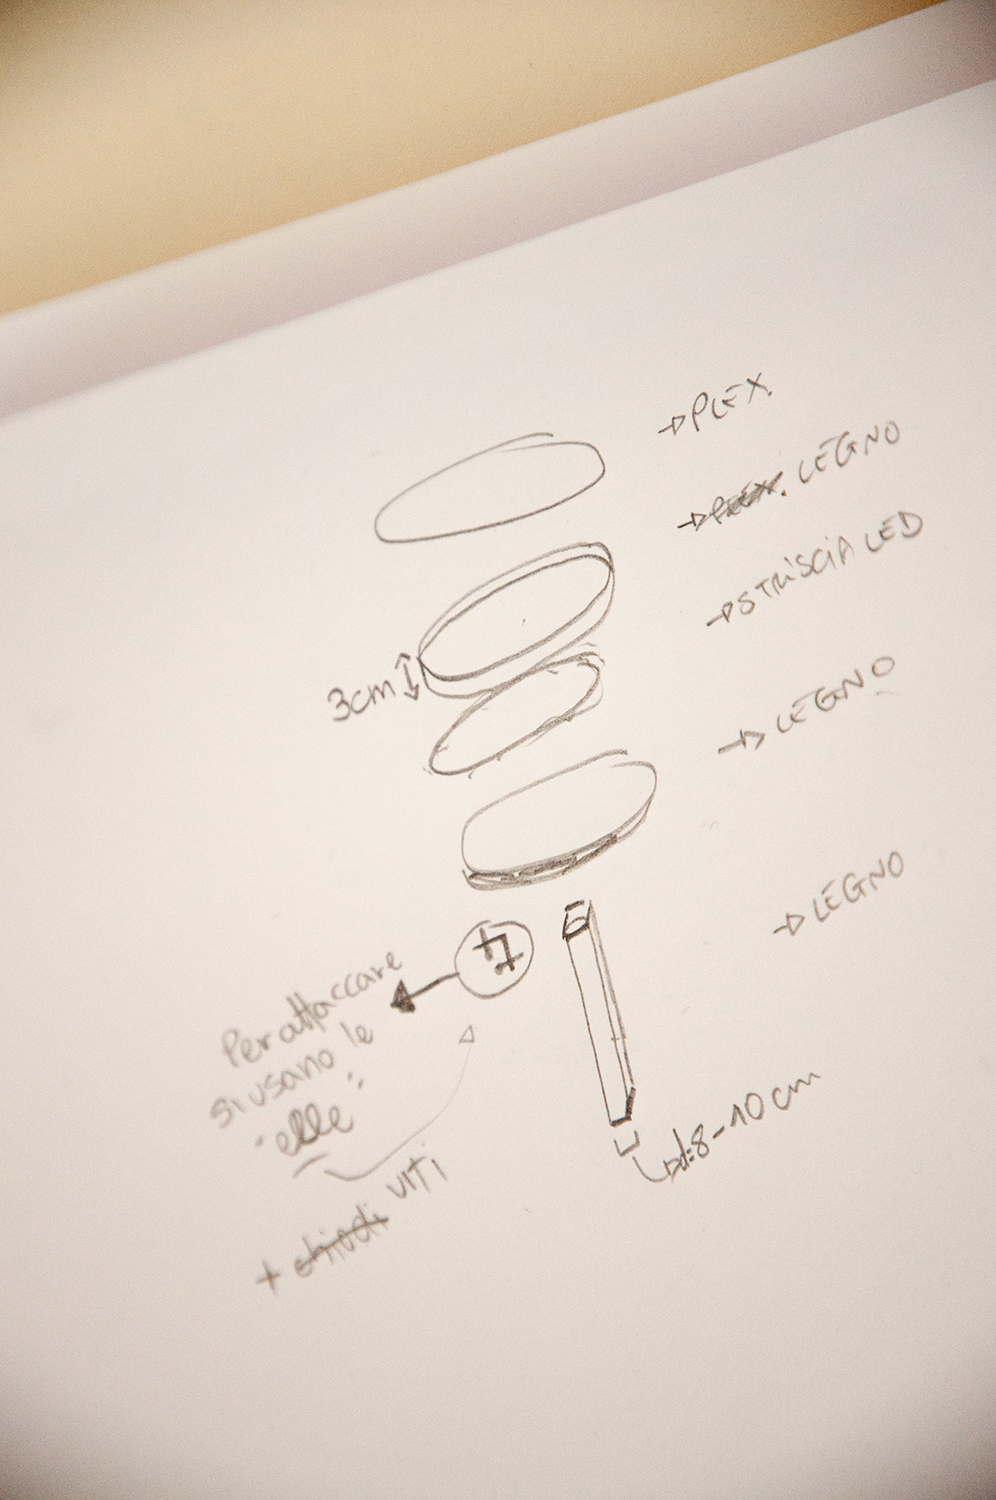 PLEX.
PLEX. LEGNO
STRISCIA LED
3cm
LEGNO
LEGNO
Per attaccare
si usano le
"elle"
d:8-10 cm
+ chiodi VITI